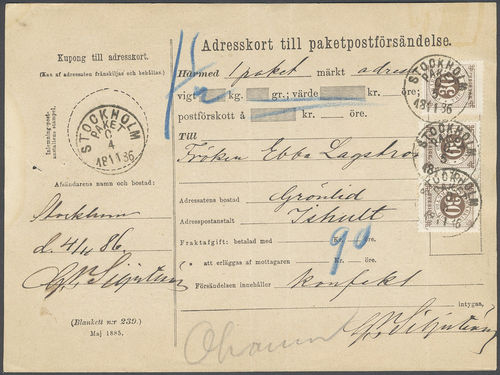 Kupong till adresskort.
(Kan af adressaten frånskiljas och behållas.)
STOCKHOLM
PAKET
C
4
18 11 36
Afsändarens namn och bostad:
Stockholm
d. 4/4 86
(Blankett n:r 239.)
Maj 1885.
Adresskort till paketpostförsändelse.
Härmed 1 paket märkt adress
vigt kg. gr.; värde kr. öre;
postförskott å kr. öre.
Till
Fröken Ebba
Adressatens bostad Grönlid
Adresspostanstalt
Fraktafgift: betalad med Kr. öre.
90
" att erläggas af mottagaren Kr. öre.
Försändelsen innehåller konfekt
intygas,
STOCKHOLM
PAKET
18 11 36
STOCKHOLM
PAKET
STOCKHOLM